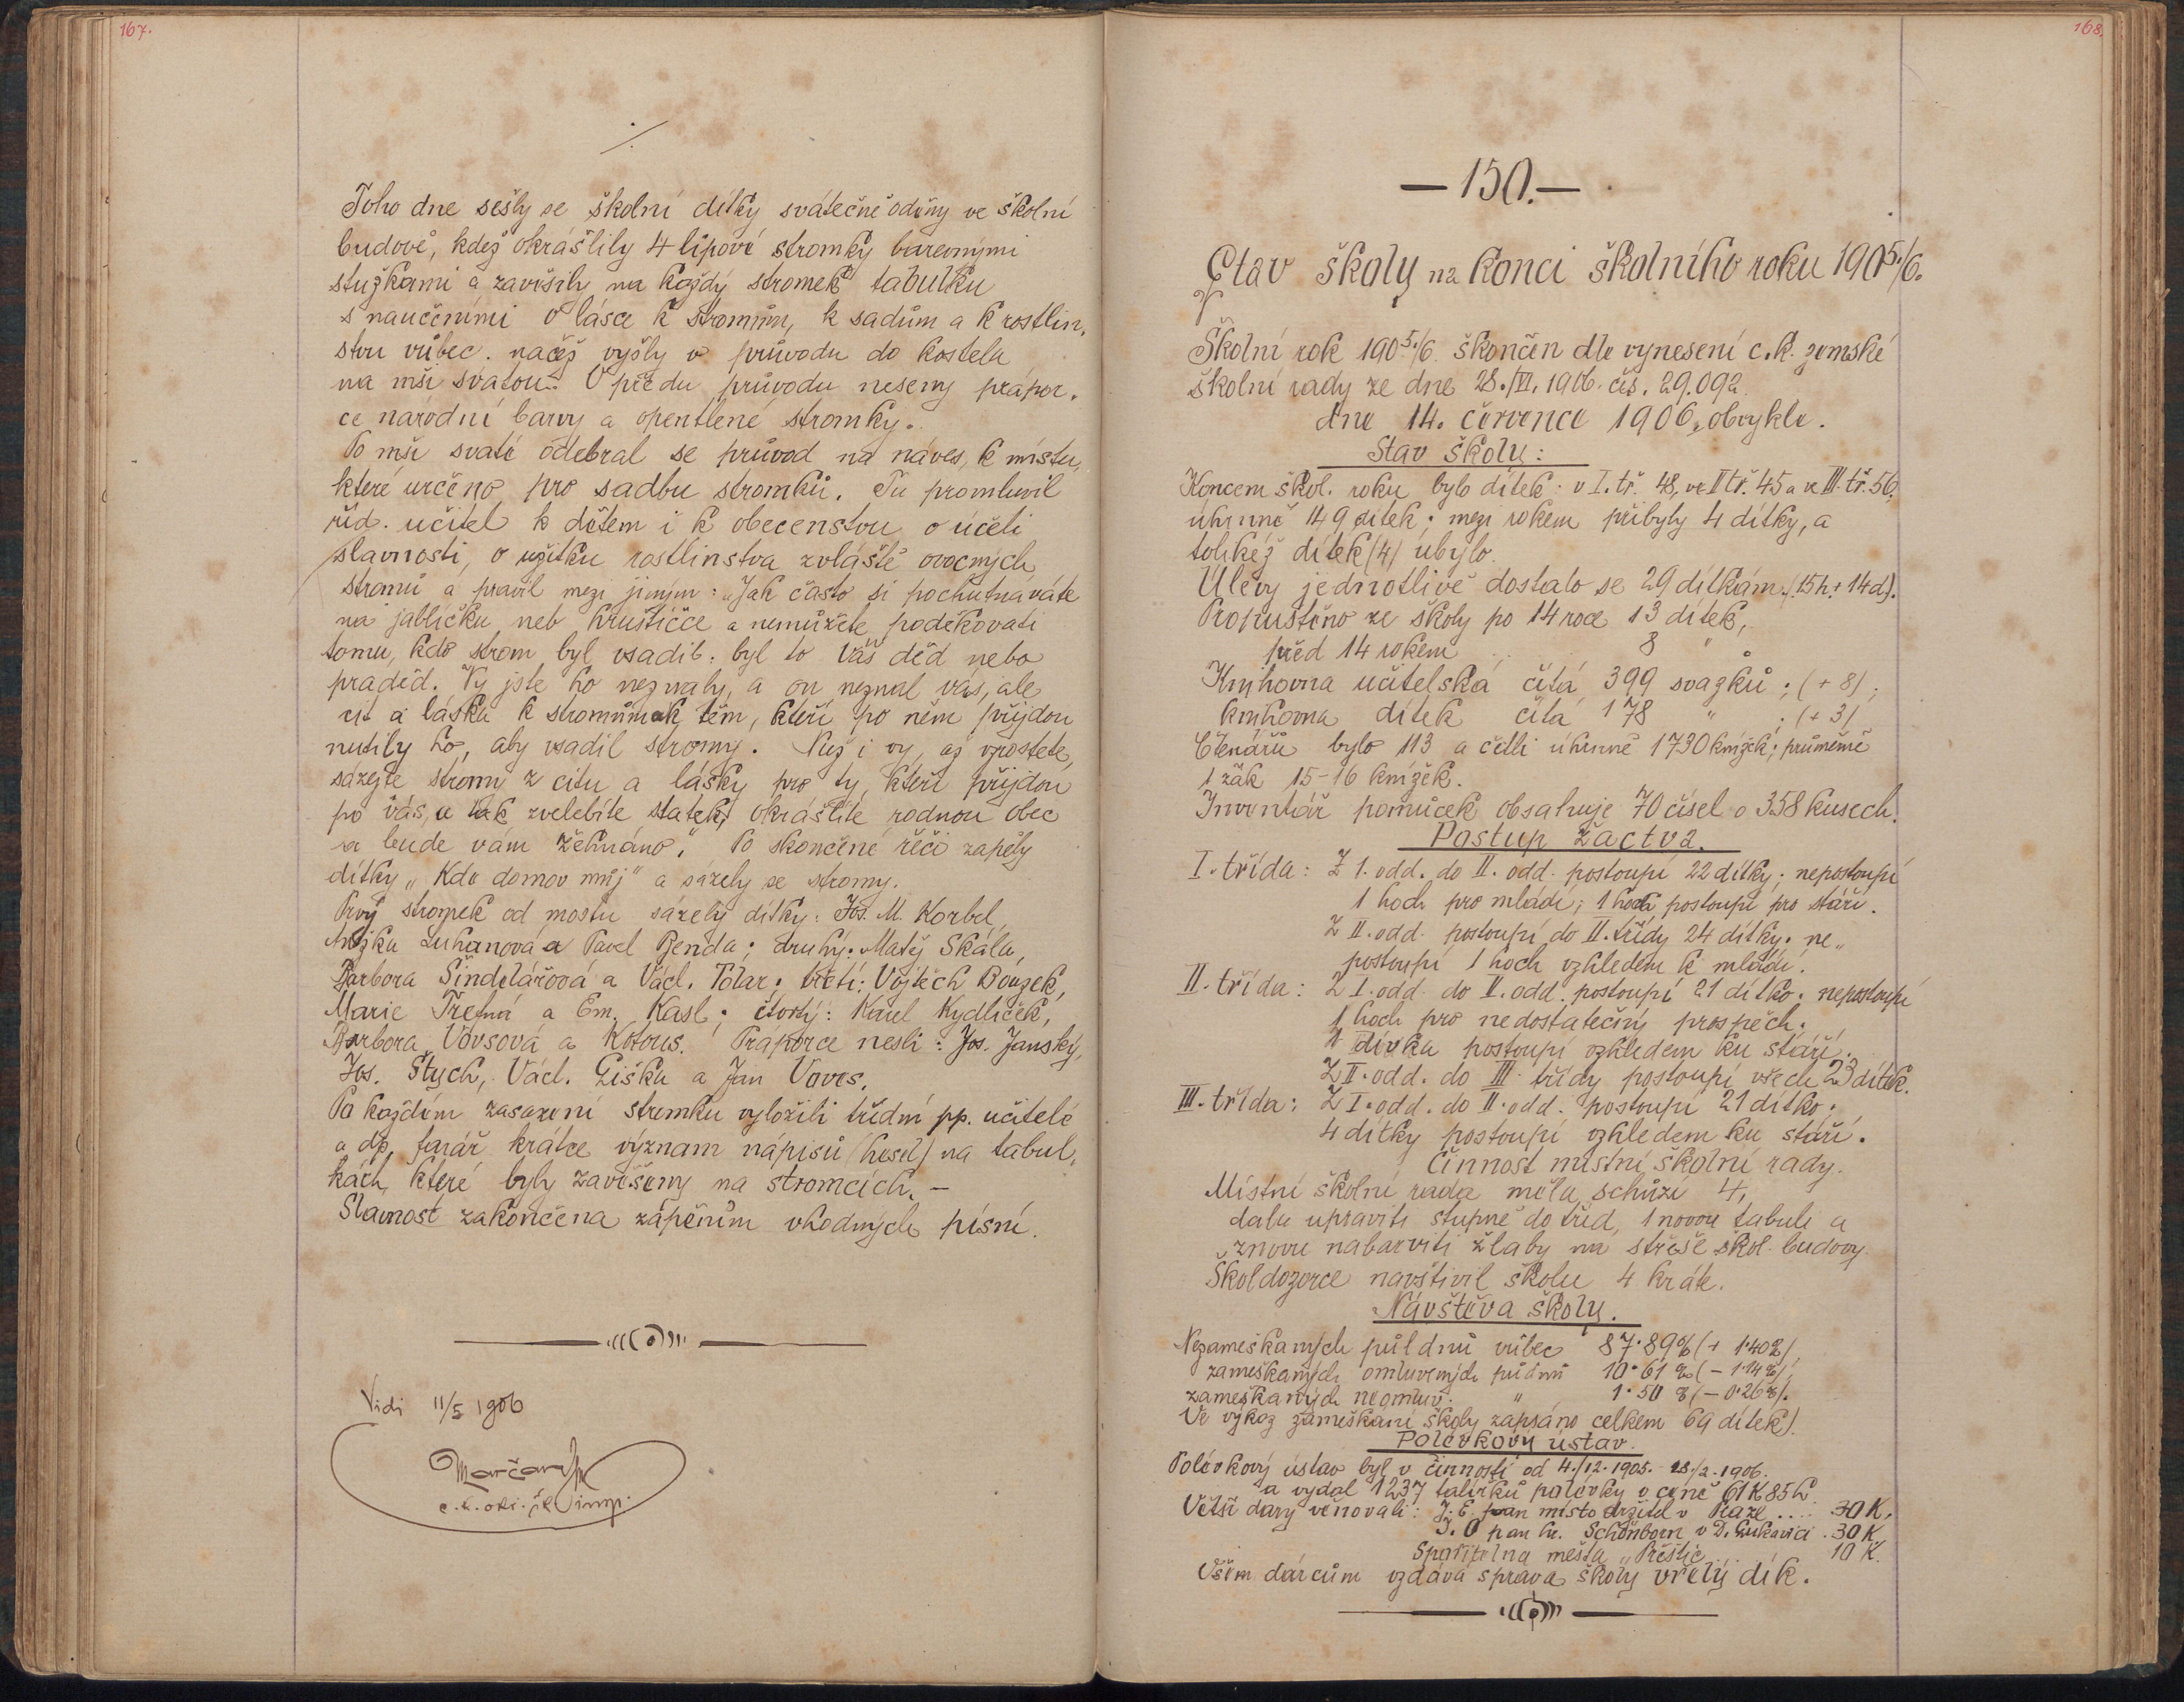 167.
Toho dne sešly se školní dítky svátečně oděny ve školní
budově, kdež okrášlily 4 lipové stromky barevnými
stužkami a zavěsily na každý stromek tabulku
s naučeními o lásce k stromům, k sadům a k rostlin„
stvu vůbec. načež vyšly v průvodu do kostela
na mši svatou. V předu průvodu neseny prápor„
ce národní barvy a opentlené stromky.
Po mši svaté odebral se průvod na náves, k místu,
které určeno pro sadbu stromků. Tu promluvil
říd. učitel k dětem i k obecenstvu o účeli
slavnosti, o užitku rostlinstva zvláště ovocných
stromů a pravil mezi jiným: „Jak často si pochutnáváte
na jablíčku neb hruštičce a nemůžete poděkovati
tomu, kdo strom byl vsadil: byl to váš děd nebo
praděd. Vy jste ho neznaly, a on neznal vás, ale
cit a láska k stromům a k těm, kteří po něm přijdou
nutily ho, aby vsadil stromy. Nuž i vy, až vzrostete,
sázejte stromy z citu a lásky pro ty, kteří přijdou
po vás, a tak zvelebíte statek, okrášlíte rodnou obec
a bude vám žehnáno“. Po skončené řeči zapěly
dítky „Kde domov můj“ a sázely se stromy.
Prvý stromek od mostu sázely dítky: Jos. M. Korbel,
Anežka Luhanová a Pavel Benda; druhý: Matěj Skála,
Barbora Šindelářová a Václ. Tolar; třetí: Vojtěch Bouzek,
Marie Trefná a Em. Kasl; čtvrtý: Karel Kydlíček,
Barbora Vovsová a Kotous. Práporce nesli: Jos. Janský,
Jos. Štych, Václ. Žiška a Jan Voves.
Po každém zasazení stromku vyložili třídní pp. učitelé
a dp. farář krátce význam nápisů (hesel) na tabul„
kách, které byly zavěšeny na stromcích. –
Slavnost zakončena zapěním vhodných písní.
Vidi 11/5 1906
c. k. okr. šk. insp.
168.
— 150. —
Stav školy na konci školního roku 1905./6.
Školní rok 1905./6. skončen dle vynesení c. k. zemské
školní rady ze dne 28./VI. 1906. čís. 29.092
dne 14. července 1906, obvykle.
Stav školy:
Koncem škol. roku bylo dítek: v I. tř. 48, ve II tř. 45 a ve III. tř. 56.
úhrnně 149 dítek; mezi rokem přibyly 4 dítky, a
tolikéž dítek (4) ubylo.
Úlevy jednotlivé dostalo se 29 dítkám. (15 h. + 14 d).
Propuštěno ze školy po 14 roce 13 dítek,
před 14 rokem 8 "
Knihovna učitelská čítá 399 svazků; (+ 8);
knihovna dítek čítá 178 " ; (+ 3)
Čtenářů bylo 113 a četli úhrnně 1730 knížek; průměrně
1 žák 15-16 knížek.
Inventář pomůcek obsahuje 70 čísel o 358 kusech.
Postup žactva.
I. třída: Z 1. odd. do II. odd. postoupí 22 dítky; nepostoupí
1 hoch pro mládí; 1 hoch postoupí pro stáří.
Z II. odd. postoupí do II. třídy 24 dítky; ne„
postoupí 1 hoch vzhledem k mládí.
II. třída: Z I. odd. do II. odd. postoupí 21 dítko; nepostoupí
1 hoch pro nedostatečný prospěch;
1 dívka postoupí vzhledem ku stáří.
Z II. odd. do III. třídy postoupí všech 23 dítek.
III. třída: Z I. odd. do II. odd. postoupí 21 dítko;
4 dítky postoupí vzhledem ku stáří.
Činnost místní školní rady.
Místní školní rada měla schůzí 4,
dala upraviti stupně do tříd, 1 novou tabuli a
znovu nabarviti žlaby na střeše škol. budovy.
Školdozorce navštívil školu 4 kráte.
Návštěva školy.
Nezameškaných půldnů vůbec 87.89% (+ 1.40%)
zameškaných omluvených půldnů 10.61% (– 1.14%);
zameškaných neomluv. " 1.50% (– 0.26%).
Ve výkaz zameškané školy zapsáno celkem 69 dítek).
Polévkový ústav.
Polévkový ústav byl v činnosti od 4./12. 1905. - 28./2. 1906.
a vydal 1237 talířků polévky v ceně 61 K 85 h.
Větší dary věnovali: J. E. pan místodržitel v Praze .... 30 K,
J. O pan kn. Schönborn v D. Lukavici . 30 K
Spořitelna města Přeštic 10 K.
Všem dárcům vzdává správa školy vřelý dík.